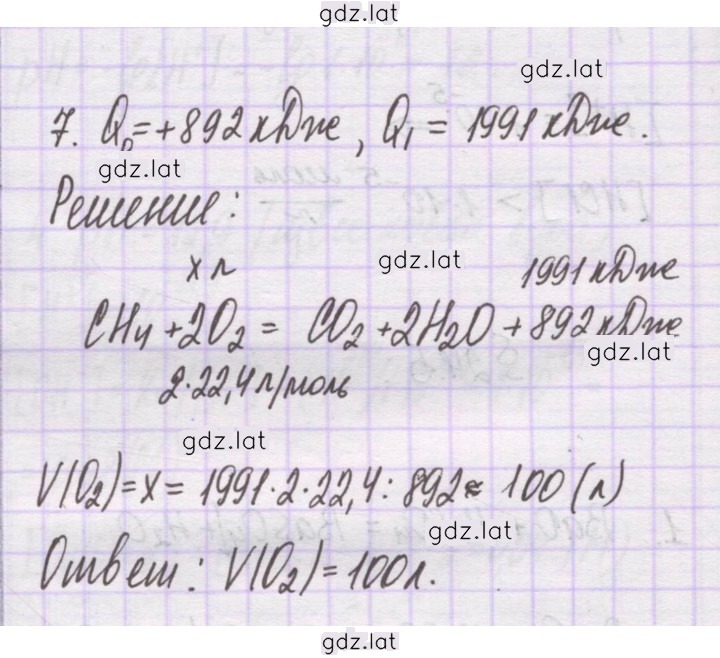 gdz.lat
gdz.lat
7. Qₚ = +892 кДж, Q₁ = 1991 кДж.
gdz.lat
Решение:
x л gdz.lat 1991 кДж
CH₄ + 2O₂ = CO₂ + 2H₂O + 892 кДж
gdz.lat
2·22,4 л/моль
gdz.lat
V(O₂) = x = 1991·2·22,4 : 892 ≈ 100 (л)
gdz.lat
Ответ: V(O₂) = 100 л.
gdz.lat